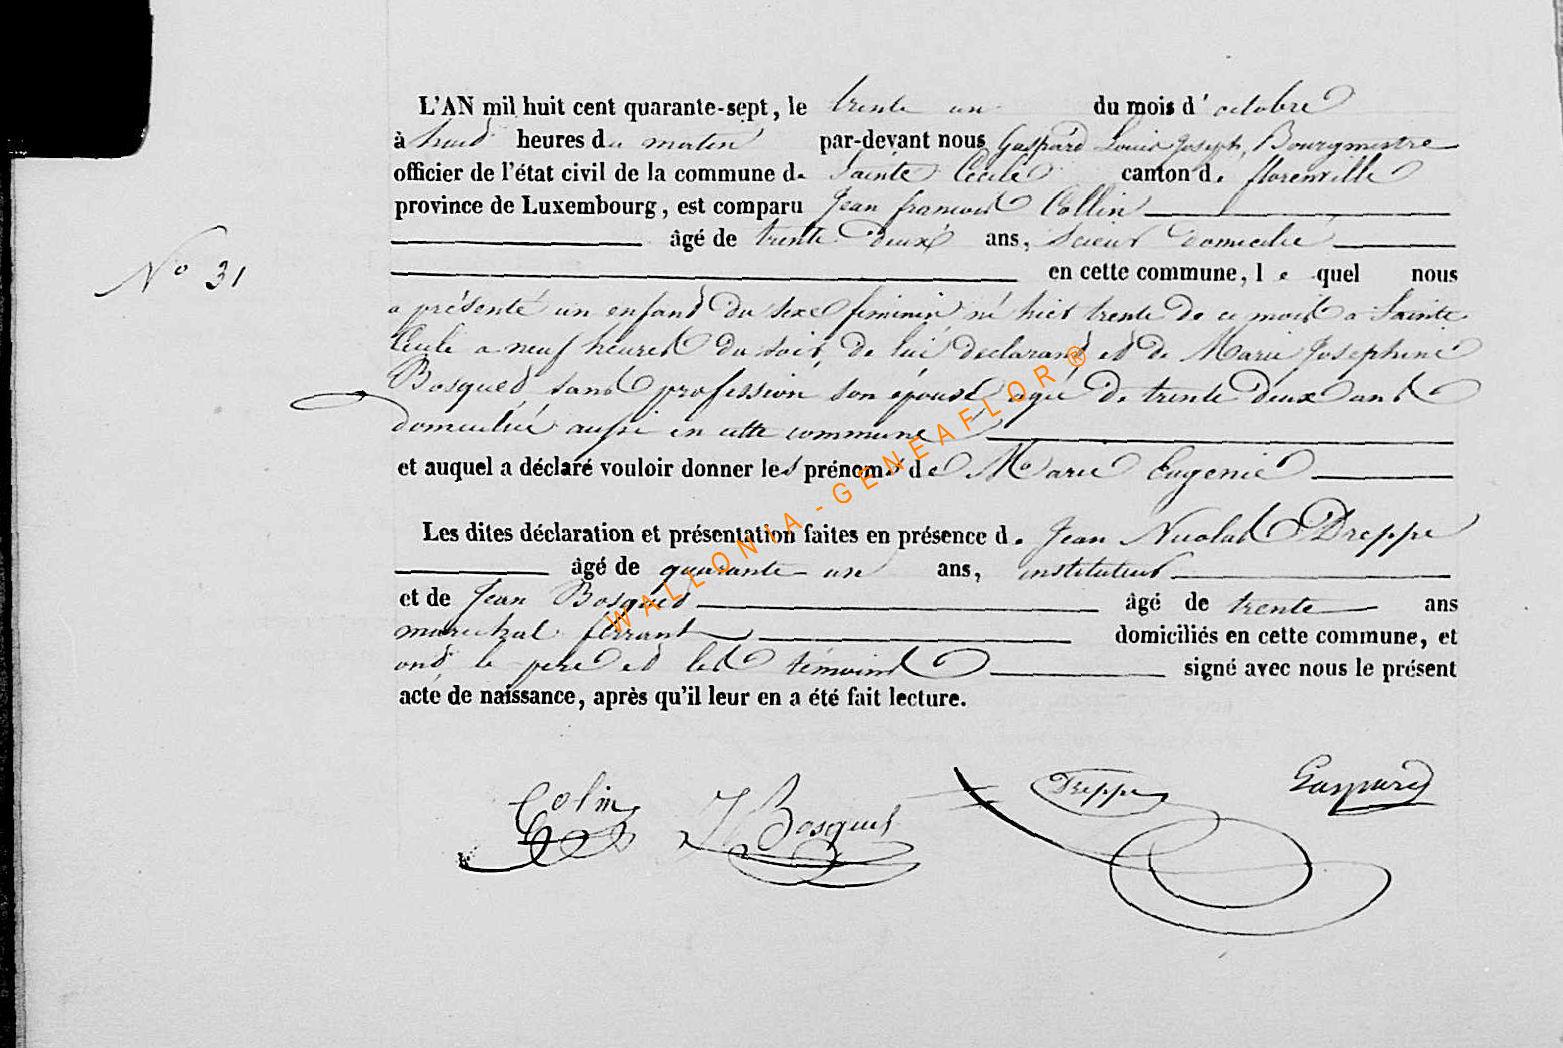 L'AN mil huit cent quarante-sept, le trente un du mois d'octobre
à huit heures du matin par-devant nous Gaspard Louis Joseph, Bourgmestre
officier de l'état civil de la commune de Sainte Cécile canton de florenville
province de Luxembourg, est comparu Jean francois Collin
âgé de trente deux ans, scieur domicilié
en cette commune, lequel nous
N° 31
a présenté un enfant du sexe féminin né hier trente de ce mois a Sainte
Cecile a neuf heures du soir, de lui déclarant et de Marie Josephine
Bosquet sans profession son épouse agée de trente deux ans
domiciliée aussi en cette commune
et auquel a déclaré vouloir donner les prénoms de Marie Eugenie
Les dites déclaration et présentation faites en présence de Jean Nicolas Dreppe
âgé de quarante un ans, instituteur
et de Jean Bosquet âgé de trente ans
maréchal ferrant domiciliés en cette commune, et
ont le pere et les témoins signé avec nous le présent
acte de naissance, après qu'il leur en a été fait lecture.
Colin J Bosquet Dreppe Gaspard
WALLONIA-GENEAFLOR®